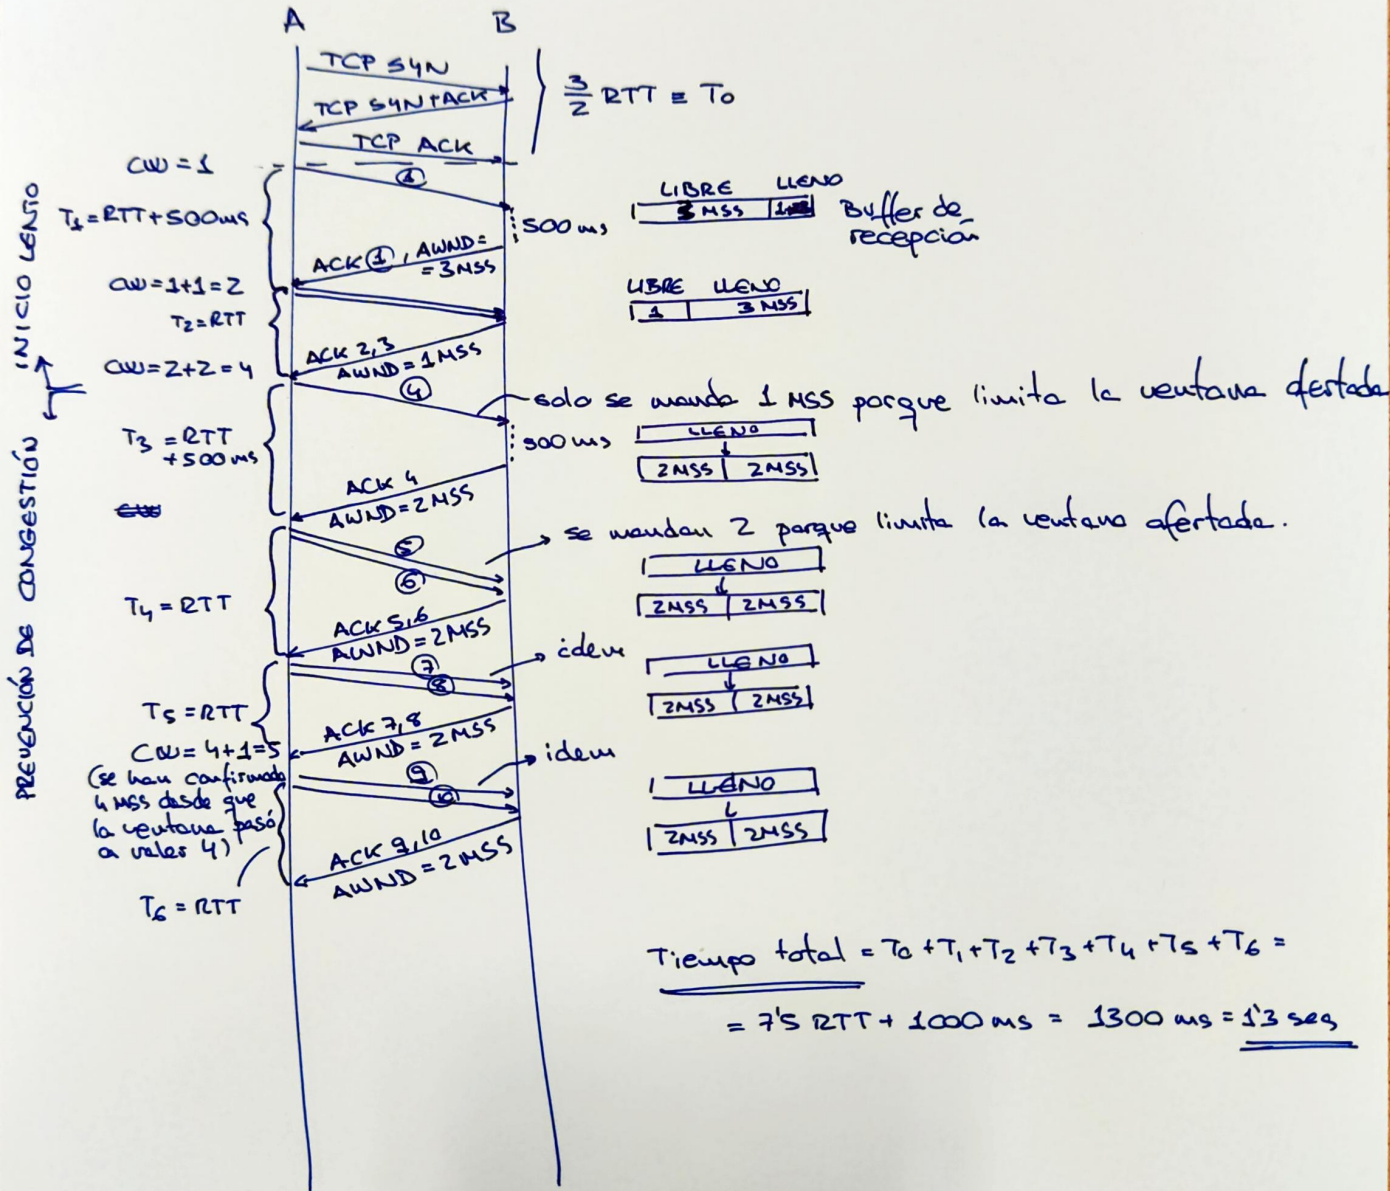 A B
TCP SYN
TCP SYN+ACK
TCP ACK
3/2 RTT ≡ T0
CW = 1
①
INICIO LENTO
T1 = RTT + 500ms
500 ms
LIBRE LLENO
3 MSS
Buffer de
recepción
ACK ①, AWND =
= 3MSS
CW = 1+1 = 2
T2 = RTT
LIBRE LLENO
1 3 MSS
ACK 2,3
AWND = 1MSS
CW = 2+2 = 4
④
solo se manda 1 MSS porque limita la ventana ofertada
PREVENCIÓN DE CONGESTIÓN
T3 = RTT
+500ms
500 ms
LLENO
2MSS 2MSS
ACK 4
AWND = 2MSS
se mandan 2 porque limita la ventana ofertada.
⑤
⑥
LLENO
2MSS 2MSS
T4 = RTT
ACK 5,6
AWND = 2MSS
idem
⑦
⑧
LLENO
2MSS 2MSS
T5 = RTT
ACK 7,8
AWND = 2MSS
CW = 4+1=5
(se han confirmado
4 MSS desde que
la ventana pasó
a valer 4)
idem
⑨
⑩
LLENO
2MSS 2MSS
ACK 9,10
AWND = 2MSS
T6 = RTT
Tiempo total = T0 + T1 + T2 + T3 + T4 + T5 + T6 =
= 7'5 RTT + 1000 ms = 1300 ms = 1'3 seg